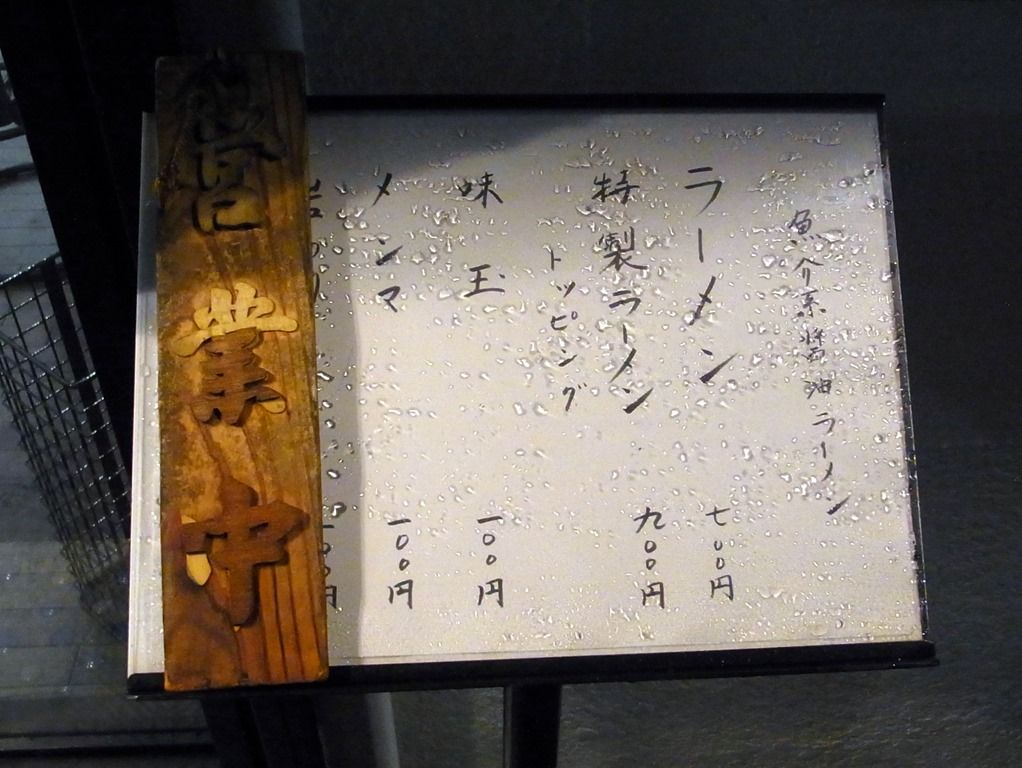 魚介系醤油ラーメン
ラーメン 七〇〇円
特製ラーメン 九〇〇円
トッピング
味玉 一〇〇円
メンマ 一〇〇円
岩のり 一〇〇円
営業中